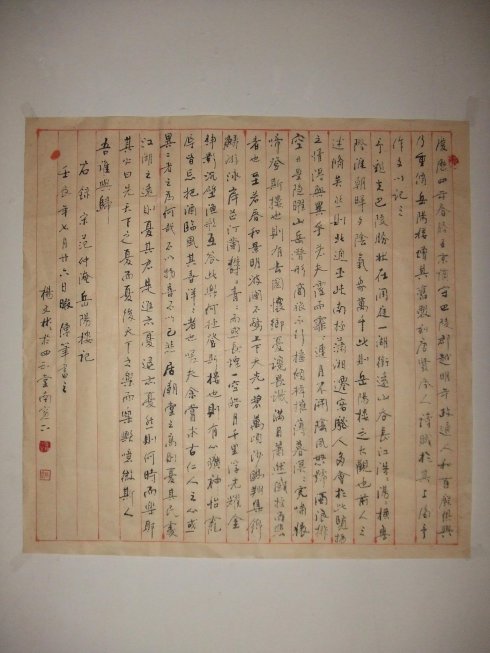 慶曆四年春滕子京謫守巴陵郡越明年政通人和百廢俱興
乃重修岳陽樓增其舊製刻唐賢今人詩賦於其上屬予
作文以記之
予觀夫巴陵勝狀在洞庭一湖銜遠山吞長江浩〻湯〻橫無
際涯朝暉夕陰氣象萬千此則岳陽樓之大觀也前人之
述備矣然則北通巫峽南極瀟湘遷客騷人多會於此覽物
之情得無異乎若夫霪雨霏〻連月不開陰風怒號濁浪排
空日星隱曜山岳潛形商旅不行檣傾楫摧薄暮冥〻虎嘯猿
啼登斯樓也則有去國懷鄉憂讒畏譏滿目蕭然感極而悲
者也至若春和景明波瀾不驚上下天光一碧萬頃沙鷗翔集錦
鱗游泳岸芷汀蘭鬱〻青〻而或長煙一空皓月千里浮光耀金
靜影沉璧漁歌互答此樂何極登斯樓也則有心曠神怡寵
辱皆忘把酒臨風其喜洋〻者也嗟夫余嘗求古仁人之心或
異二者之為何哉不以物喜不以己悲居廟堂之高則憂其民處
江湖之遠則憂其君是進亦憂退亦憂然則何時而樂耶
其必曰先天下之憂而憂後天下之樂而樂歟噫微斯人
吾誰與歸
右錄宋范仲淹岳陽樓記
年七月廿六日筆書之
楊文彬於四堂南窗下